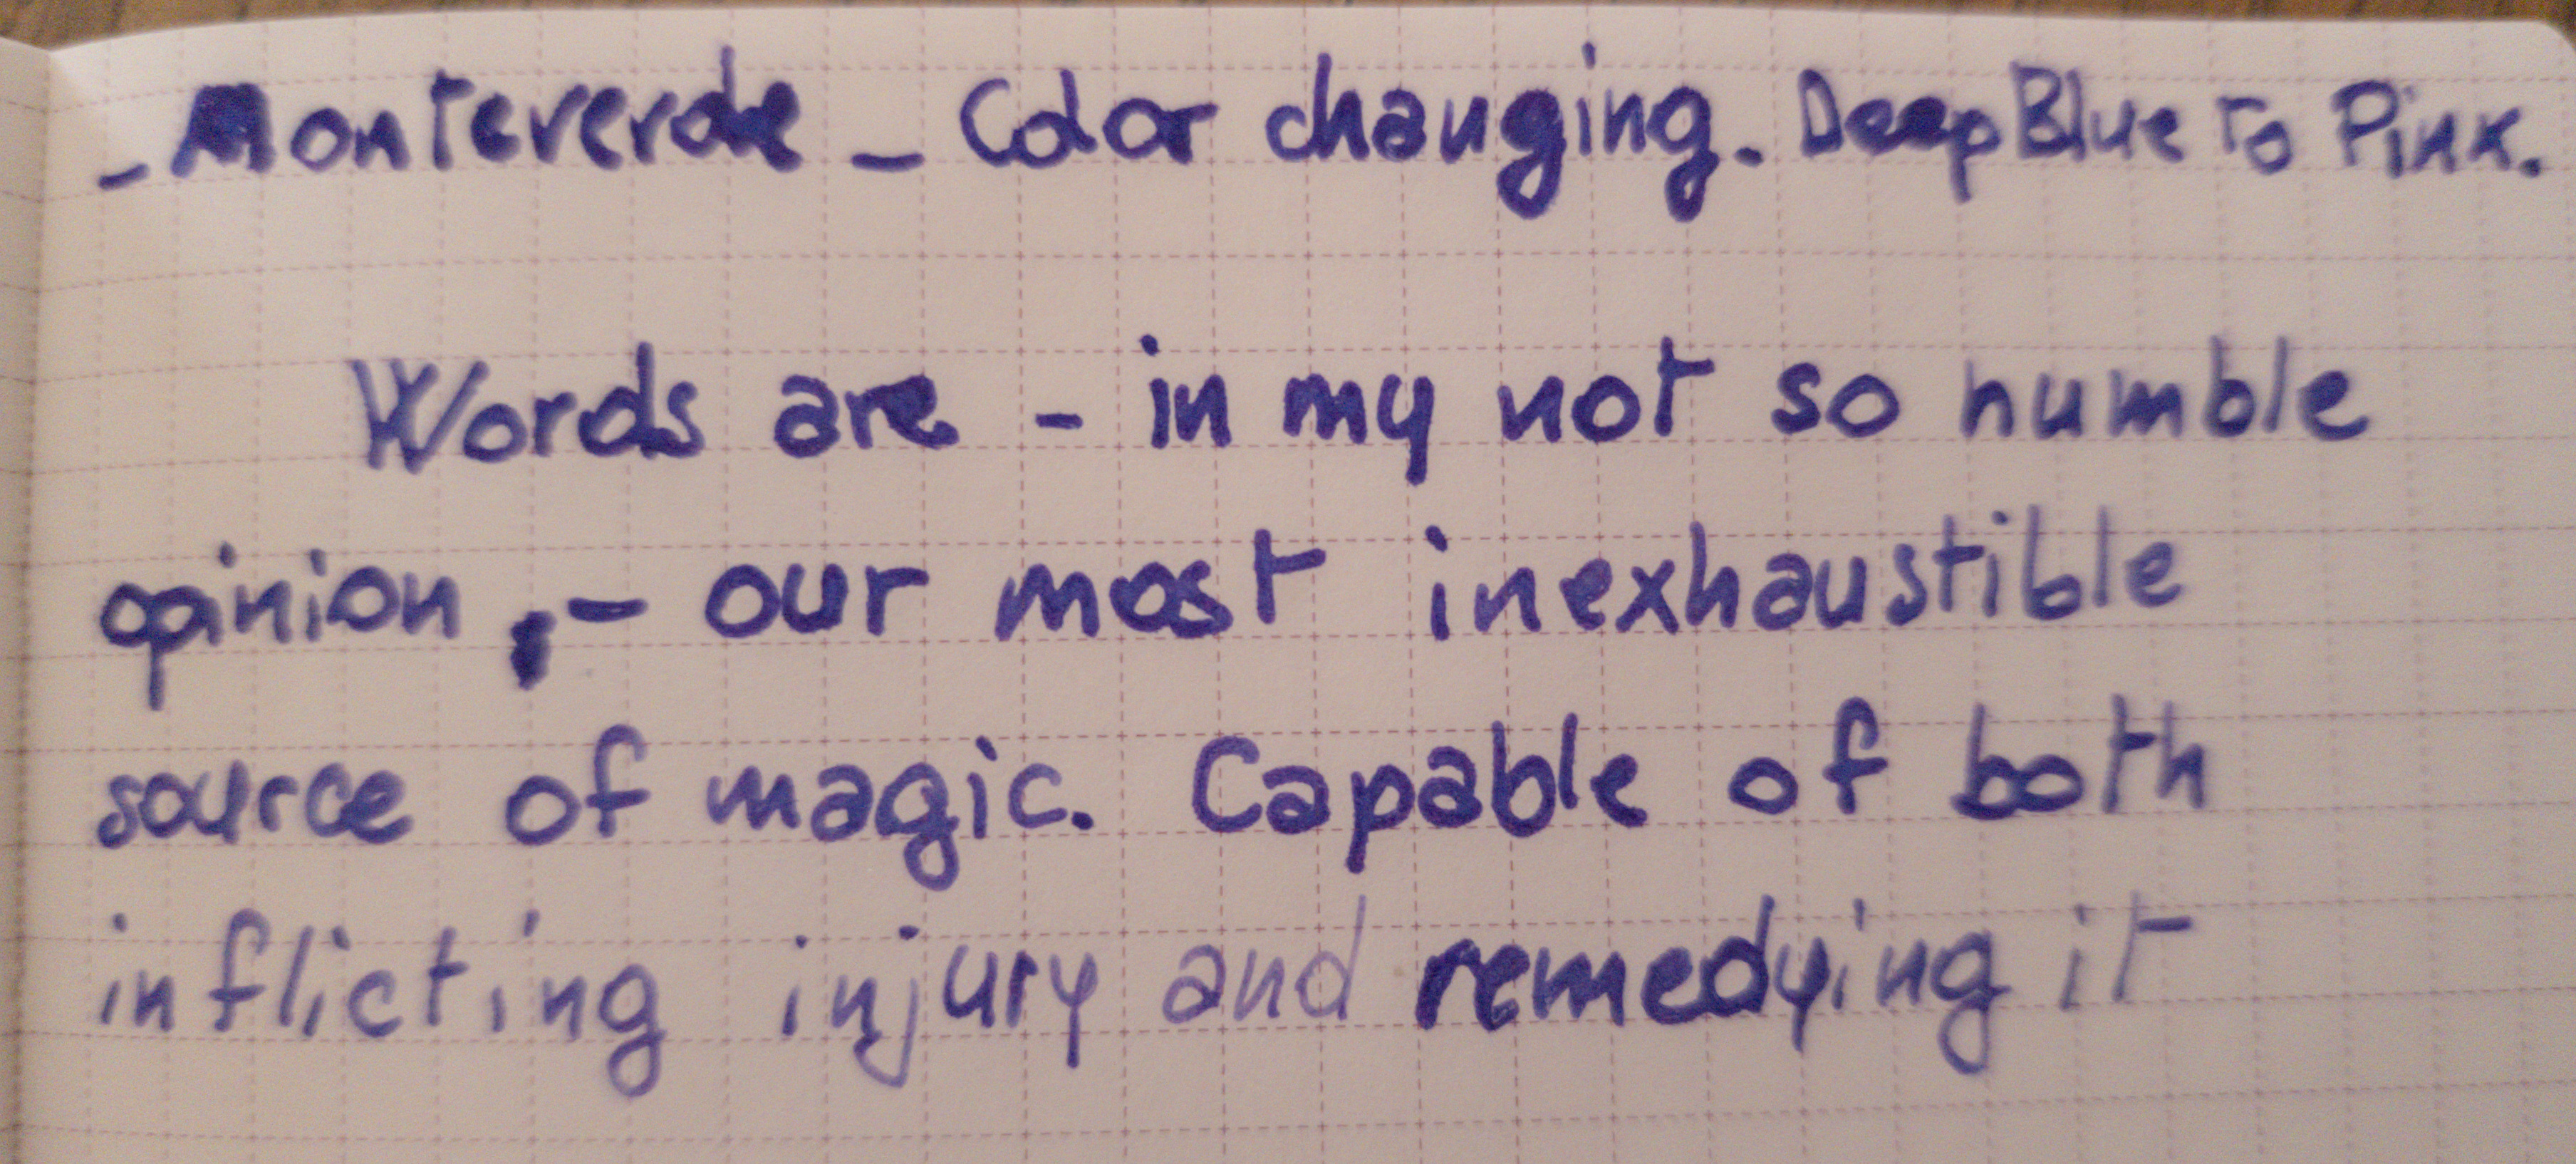 - Monteverde - Color changing. Deep Blue to Pink.
Words are - in my not so humble
opinion, - our most inexhaustible
source of magic. Capable of both
inflicting injury and remedying it